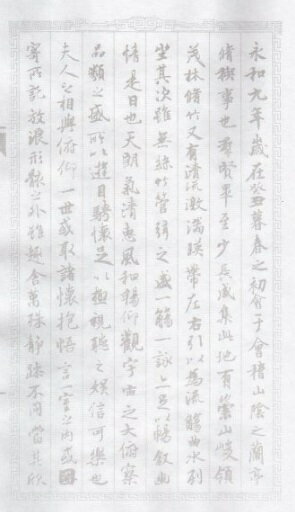 永和九年歲在癸丑暮春之初會于會稽山陰之蘭亭
脩禊事也羣賢畢至少長咸集此地有崇山峻領
茂林脩竹又有清流激湍暎帶左右引以為流觴曲水列
坐其次雖無絲竹管弦之盛一觴一詠亦足以暢敘幽
情是日也天朗氣清惠風和暢仰觀宇宙之大俯察
品類之盛所以遊目騁懷足以極視聽之娛信可樂也
夫人之相與俯仰一世或取諸懷抱悟言一室之內或因
寄所託放浪形骸之外雖趣舍萬殊靜躁不同當其欣